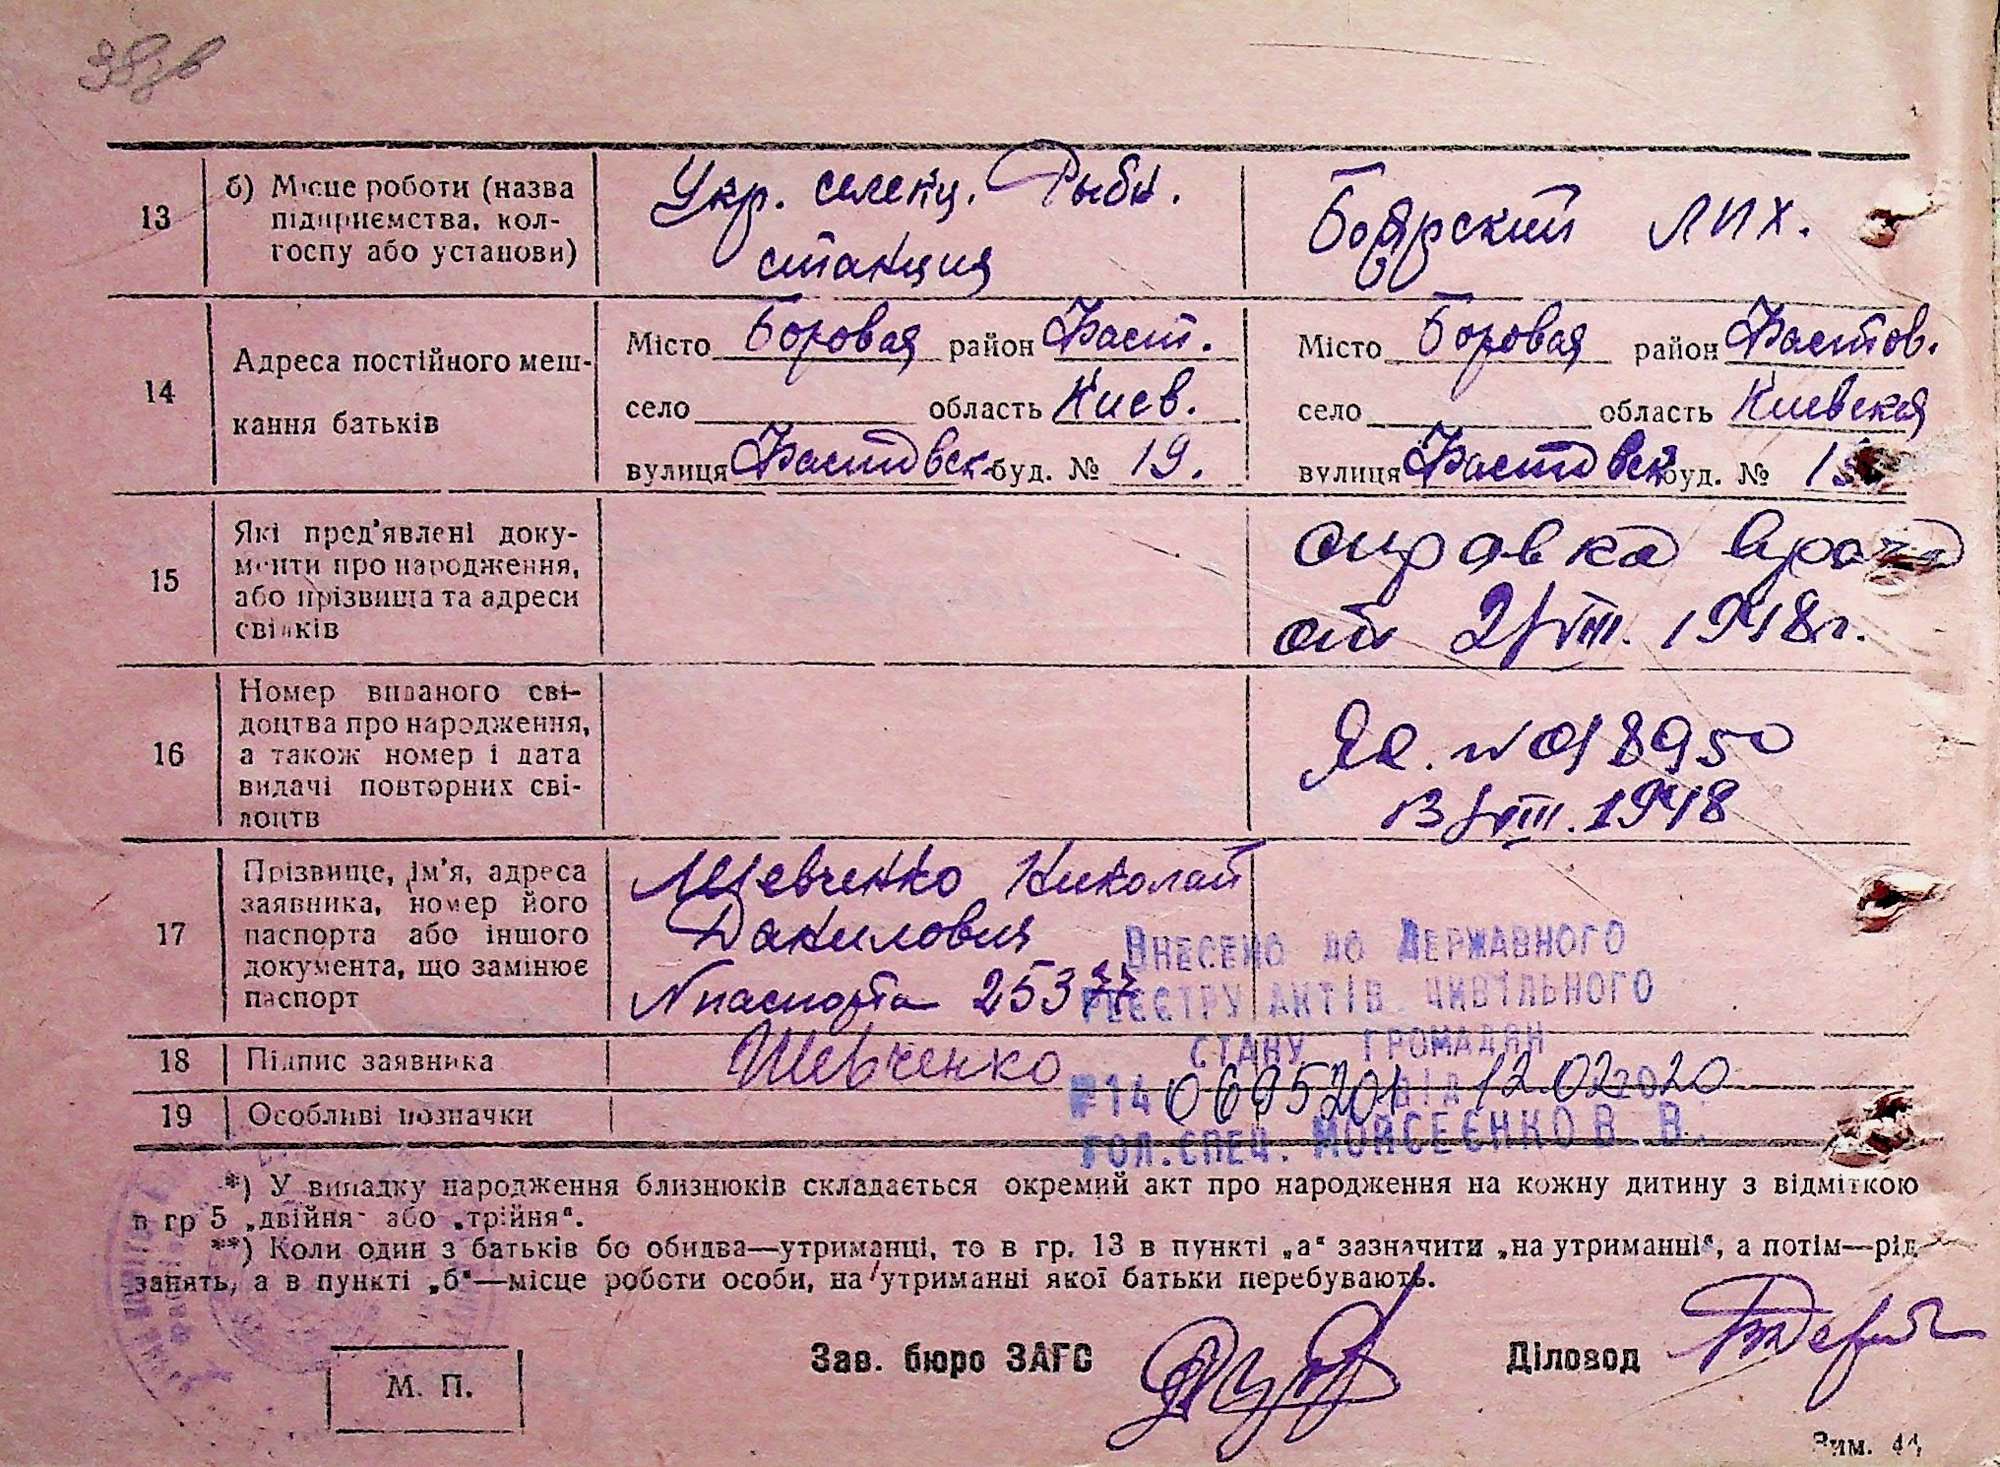 13
б) Місце роботи (назва
підприємства, кол-
госпу або установи)
Укр. селекц. Рыбн.
станция
Боярский ЛПХ.
14
Адреса постійного меш-
кання батьків
Місто Боровая район Фаст.
село область Киев.
вулиця Фастовск. буд. № 19.
Місто Боровая район Фастов.
село область Киевская
вулиця Фастовск буд. №
15
Які пред'явлені доку-
менти про народження,
або прізвища та адреси
свідків
справка врача
от 2/VIII. 1948г.
16
Номер виданого сві-
доцтва про народження,
а також номер і дата
видачі повторних сві-
доцтв
N 018950
13/VIII. 1948
17
Прізвище, ім'я, адреса
заявника, номер його
паспорта або іншого
документа, що замінює
паспорт
Шевченко Николай
Данилович
N паспорта 25377
18
Підпис заявника
Шевченко
19
Особливі позначки
Внесено до Державного
реєстру актів цивільного
стану громадян
№ 14 0695201 від 12.02.2020
Гол.спец. Мойсеєнко В. В.
*) У випадку народження близнюків складається окремий акт про народження на кожну дитину з відміткою
в гр 5 „двійня“ або „трійня“.
**) Коли один з батьків бо обидва—утриманці, то в гр. 13 в пункті „а“ зазначити „на утриманні“, а потім—рід
занять, а в пункті „б“—місце роботи особи, на утриманні якої батьки перебувають.
М. П.
Зав. бюро ЗАГС
Діловод
Зим. 44